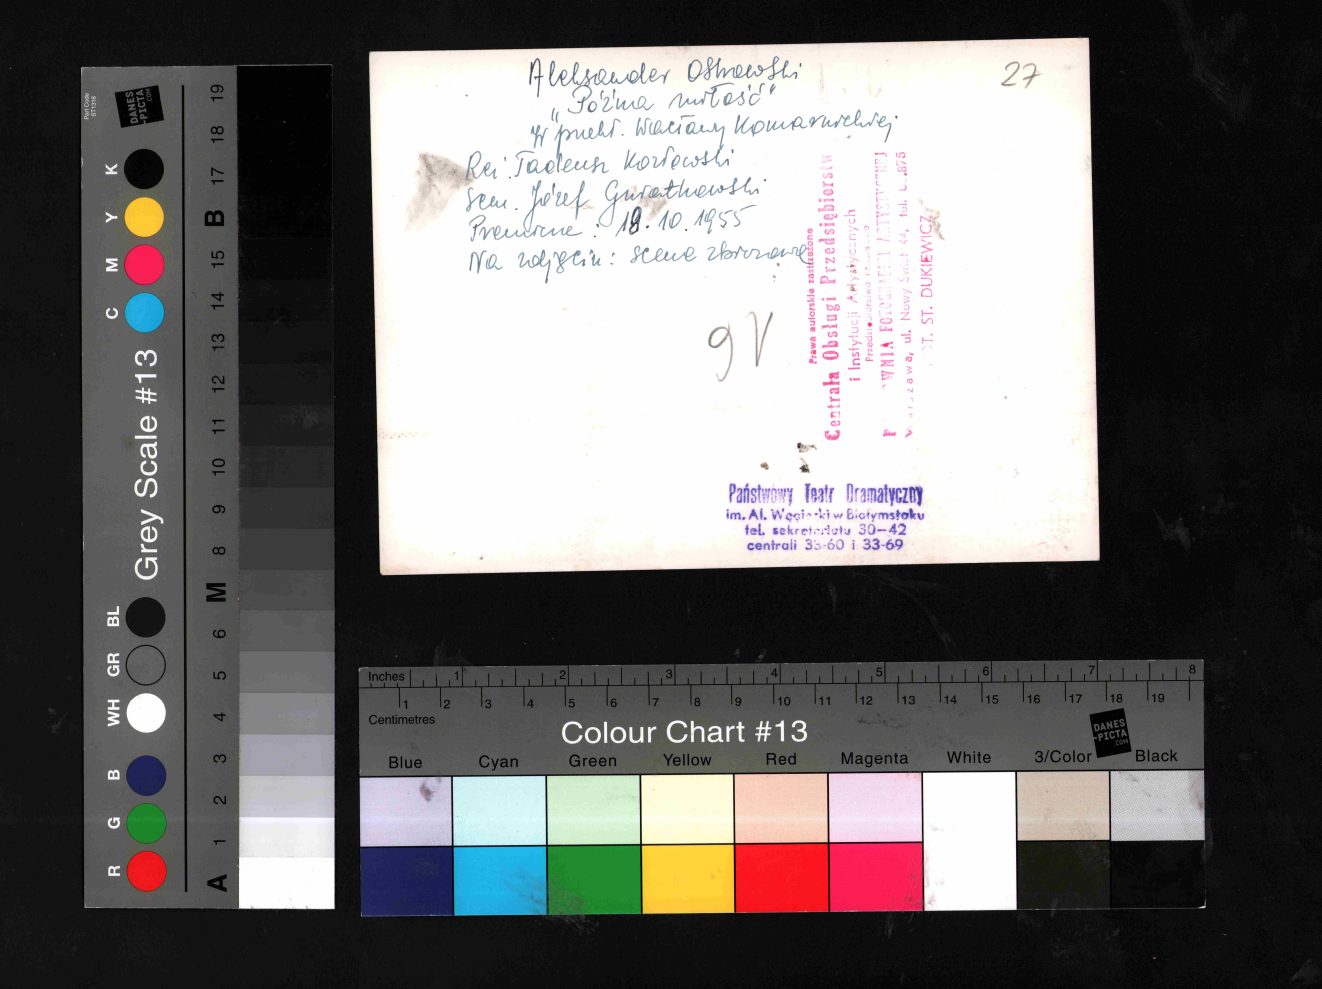 Aleksander Ostrowski
"Późna miłość"
W przekł. Wacławy Komarnickiej
Reż. Tadeusz Kozłowski
Scen. Józef
Premiera: 18.10.1955
Na zdjęciu: scena zbiorowa
27
9V
Prawa autorskie zastrzeżone
Centrala Obsługi Przedsiębiorstw
i Instytucji Artystycznych
FOTOGRAFII ARTYSTYCZNEJ
ul. Nowy Świat tel.
ST. DUKIEWICZ
Państwowy Teatr Dramatyczny
im. Al. Węgierki w Białymstoku
tel. sekretariatu 30-42
centrali 33-60 i 33-69
Part Code
ST1316
DANES
-PICTA
.COM
Grey Scale #13
R G B WH GR BL C M Y K
A 1 2 3 4 5 6 M 8 9 10 11 12 13 14 15 B 17 18 19
Inches 1 2 3 4 5 6 7 8
1 2 3 4 5 6 7 8 9 10 11 12 13 14 15 16 17 18 19
Centimetres
Colour Chart #13
DANES
-PICTA
.COM
Blue Cyan Green Yellow Red Magenta White 3/Color Black